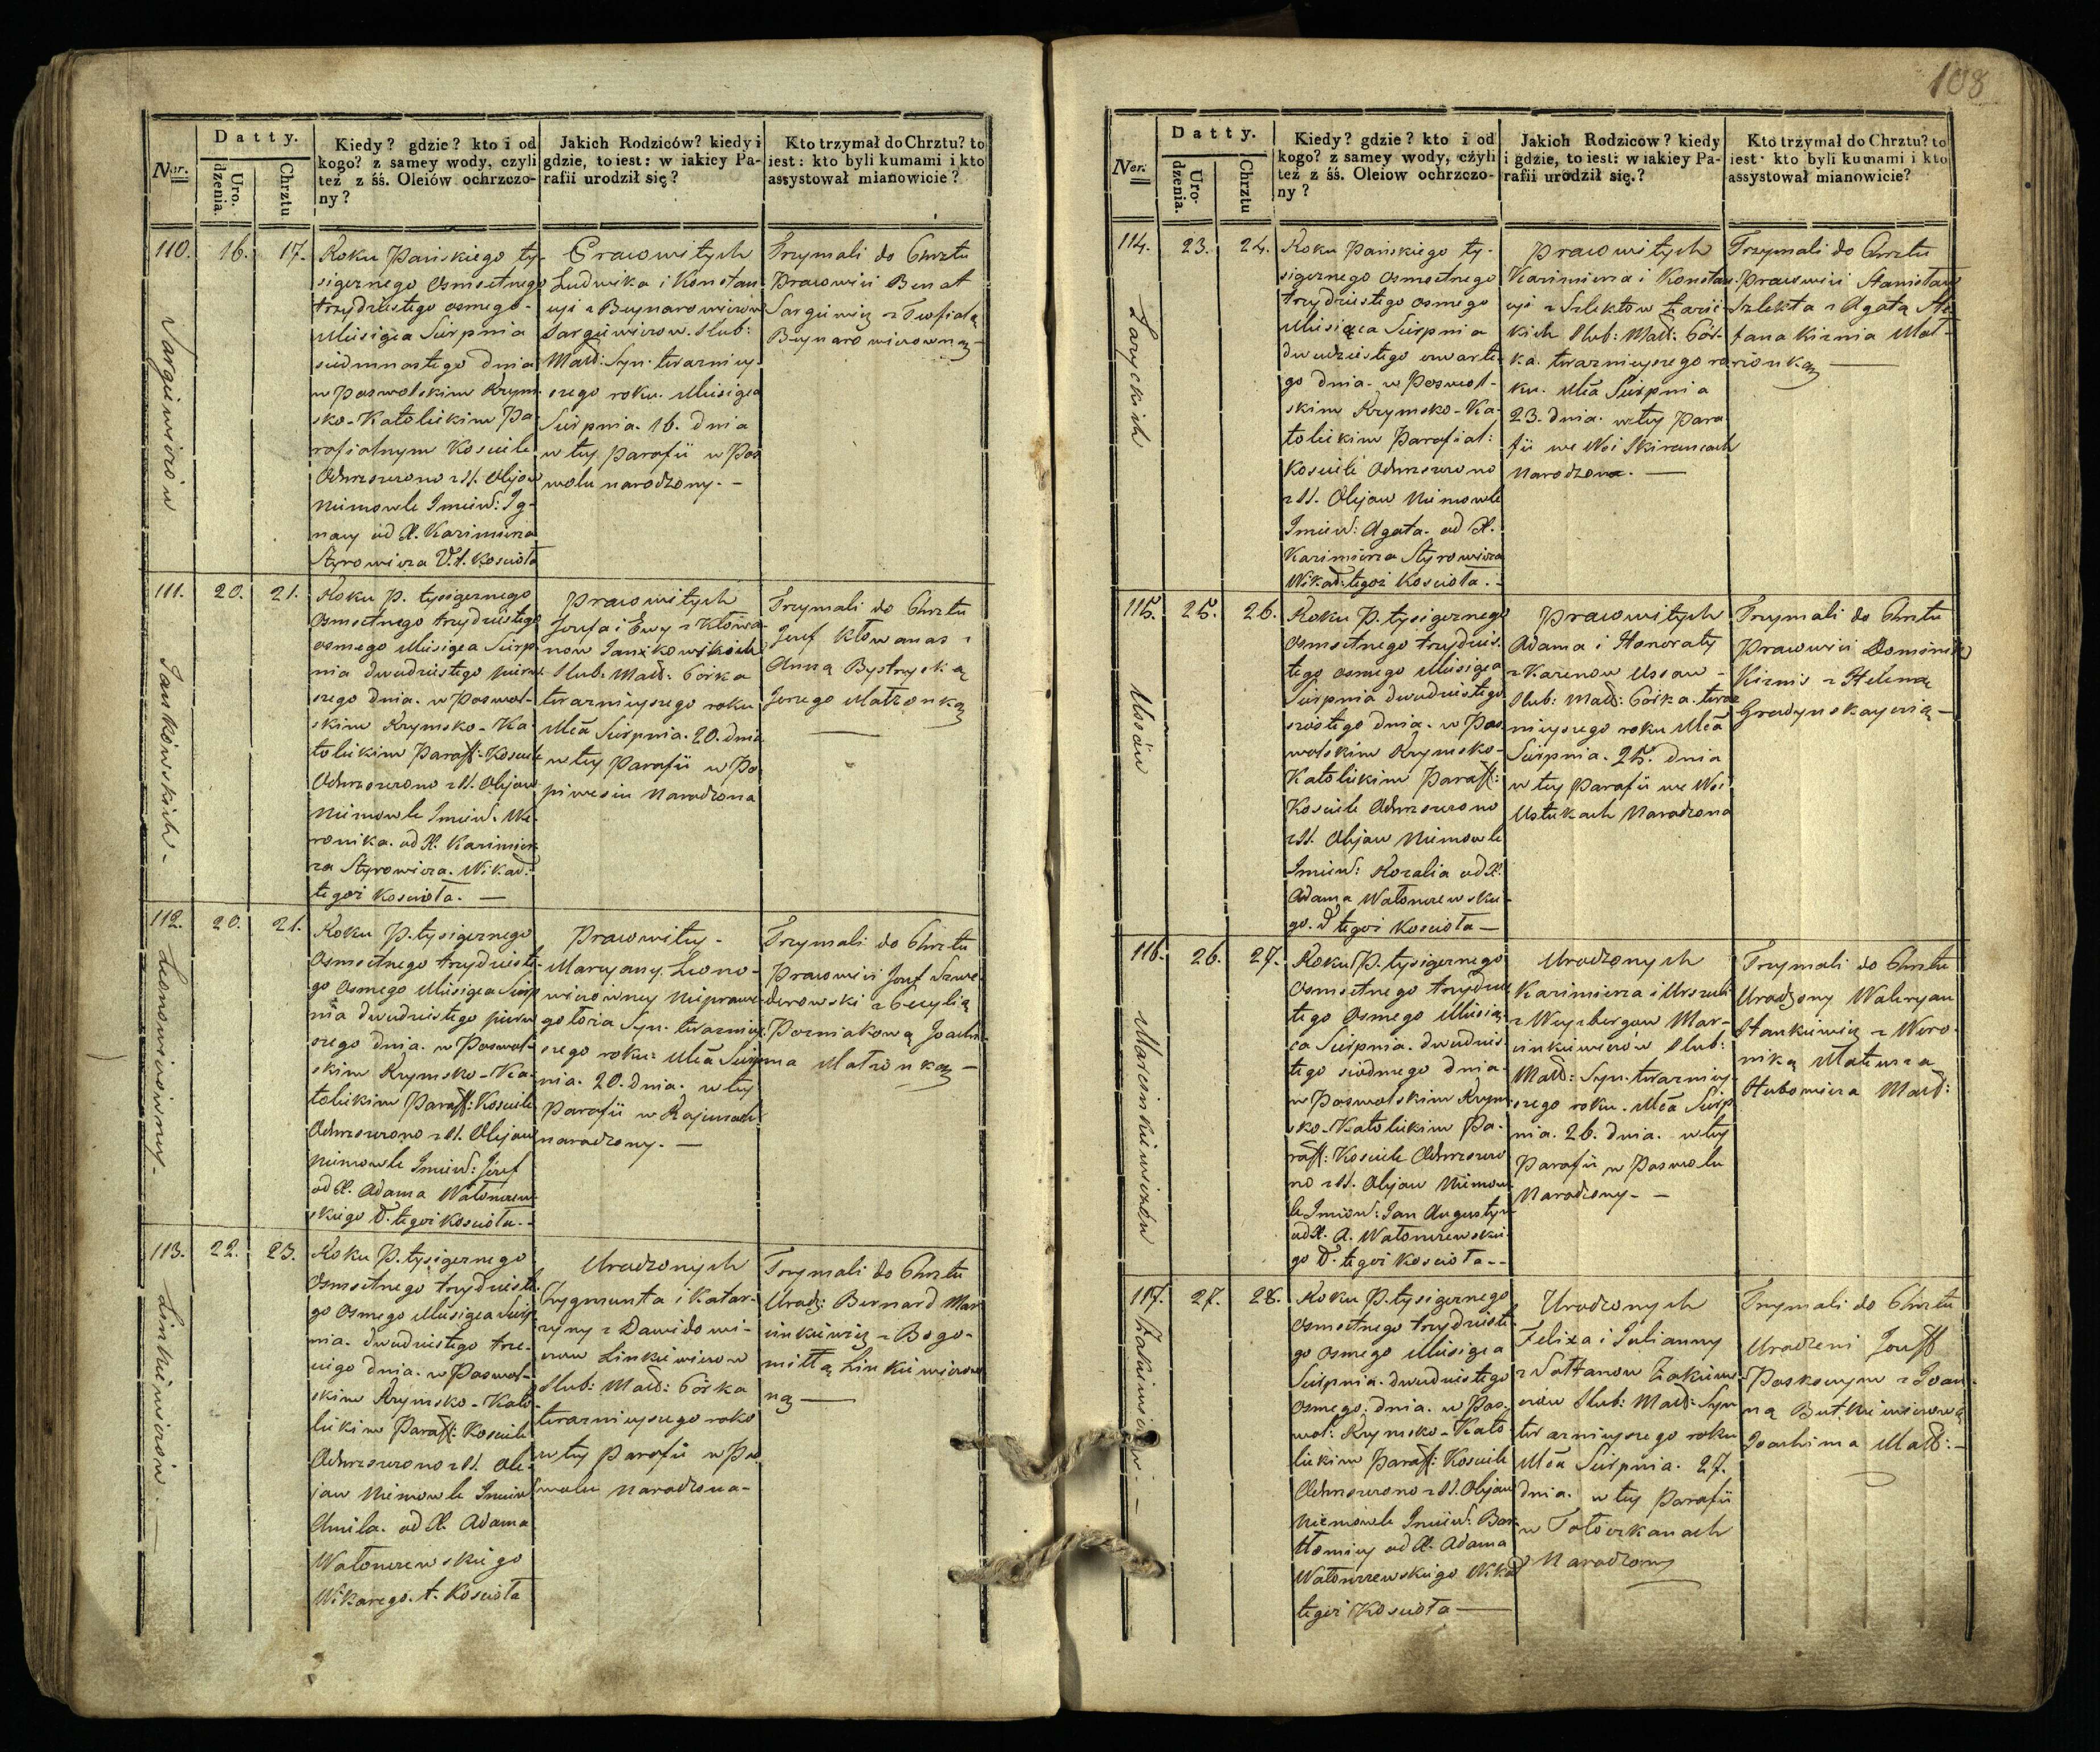 108
Datty.
Ner.
Uro-
dzenia.
Chrztu
Kiedy? gdzie? kto i od
kogo? z samey wody, czyli
też z śś. Oleiów ochrzczo-
ny?
Jakich Rodziców? kiedy i
gdzie, to iest: w iakiey Pa-
rafii urodził się?
Kto trzymał do Chrztu? to
iest: kto byli kumami i kto
assystował mianowicie?
110. 16. 17.
Roku Pańskiego ty-
sięcznego osmsetnego
trzydziestego osmego
Miesiąca Sierpnia
siedmnastego dnia
w Poswolskim Rzym-
sko-Katolickim Pa-
rafialnym Kosciele
Ochrzczono z SS. Olejow
Niemowle Imien: Ig-
nacy od X. Kazimierza
Styrowicza W. t. Koscioła
Prawowitych
Ludwika i Konstan-
cyi z Buynarowiczow
Sargiewiczow. Slub:
Małż: Syn. teraznieỳ-
szego roku. Miesiąca
Sierpnia. 16. dnia
w tey Parafii w Pos
wolu narodzony. -
Trzymali do Chrztu
Prawowici Benat
Sargiewicz z Teofilą
Buynarowiczowną
111. 20. 21.
Jankowskich -
Roku P. tysięcznego
Osmsetnego trzydziestego
osmego Miesiąca Sierp
nia dwudziestego pierw
szego dnia. w Poswol-
skim Rzymsko-Ka
tolickim Paraff: Kosciele
Ochrzczono z SS. Olejow
Niemowle Imien. We-
ronika. od X. Kazimier
za Styrowicza. Wikar.
tegoż Koscioła. —
Prawowitych
Jozefa i Ewy z Kłowa-
now Jankowskich
Slub. Małż. Córka
teraznieyszego roku
Mca Sierpnia. 20. dnia
w tey Parafii w Po
piwesiu Narodzona
Trzymali do Chrztu
Jozef Kłowanas z
Anną Bystrycką
Jerzego Małżonką
112. 20. 21.
Roku P. tysięcznego
Osmsetnego trzydzieste-
go Osmego Miesiąca Sierp
nia dwudziestego pierw
szego dnia. w Poswol-
skim Rzymsko-Ka-
tolickim Paraff: Kosciele
Ochrzczono z SS. Olejow
Niemowle Imien: Józef
od X. Adama Watonczew-
skiego W. tegoż Kosciola. -
Prawowitey -
Maryanny Leono-
wiczowney Nieprawe-
go łoża Syn. teraznie
szego roku: Mca Sierp
nia. 20. dnia. w tey
Parafii w Rajunach
narodzony. —
Trzymali do Chrztu
Prawowici Jozef Szwe-
derowski z Cecylią
Pozniakową Joachi-
ma Małżonką —
113. 22. 23.
Linkiewiczow. —
Roku P. tysięcznego
Osmsetnego trzydzieste-
go Osmego Miesiąca Sierp
nia. dwudziestego trze-
ciego dnia. w Poswol-
skim Rzymsko-Kato
lickim Paraff: Kosciele
Ochrzczono z SS. Ole-
jow Niemowle Imien
Emila. od X. Adama
Watonczewskiego
Wikarego. t. Kosciola
Urodzonych
Zygmunta i Katar-
zyny z Dawidowi-
czow Linkiewiczow
Slub: Małż: Córka
teraznieyszego roko
w tey Parafii w Po
swolu Narodzona -
Trzymali do Chrztu
Urodz: Bernard Mar
cinkiewicz z Bogo-
miłłą Linkiewiczow
ną —
Datty.
Ner.
Uro-
dzenia.
Chrztu
Kiedy? gdzie? kto i od
kogo? z samey wody, czyli
też z śś. Oleiow ochrzczo-
ny?
Jakich Rodziców? kiedy
i gdzie, to iest: w iakiey Pa-
rafii urodził się.?
Kto trzymał do Chrztu? to
iest: kto byli kumami i kto
assystował mianowicie?
114. 23. 24.
Roku Pańskiego ty-
sięcznego osmsetnego
trzydziestego osmego
Miesiąca Sierpnia
dwudziestego czwarte-
go dnia. w Poswol-
skim Rzymsko-Ka-
tolickim Parafial:
Kosciele Ochrzczono
z SS. Olejow Niemowle
Imien: Agata. od X.
Kazimierza Styrowicza
Wikar: tegoż Kosciola. -
Prawowitych
Kazimierza i Konstan-
cyi z Szlektow
Slub: Małż: Cór-
ka. teraznieyszego ro
ku. Mca Sierpnia
23. dnia. w tey Para
fii we Wsi Skiraniach
Narodzona. —
Trzymali do Chrztu
Prawowici Stanisław
Szlekta z Agatą Ste-
fana Kirznia Mał-
żonką —
115. 25. 26.
Roku P. tysięcznego
Osmsetnego trzydzies-
tego osmego Miesiąca
Sierpnia dwudziestego
szóstego dnia. w Pos
wolskim Rzymsko-
Katolickim Paraff:
Kosciele Ochrzczono
z SS. Olejow Niemowle
Imien: Rozalia od X.
Adama Watonczewskie-
go. W tegoż Kosciola —
Prawowitych
Adama i Honoraty
z Karenow Ussow -
Slub: Małż: Córka. teraz
nieyszego roku Mca
Sierpnia. 25. dnia
w tey Parafii we Wsi
Ustukach Narodzona
Trzymali do Chrztu
Prawowici Dominik
Kirznis z Heleną
116. 26. 27.
Marcinkiewiczów
Roku P. tysięcznego
Osmsetnego trzydzies
tego Osmego Miesią-
ca Sierpnia. dwudzies-
tego siodmego dnia.
w Poswolskim Rzym
sko-Katolickim Pa-
raff: Kosciele Ochrzczo
no z SS. Olejow Niemow-
le Imion: Jan Augustyn
od X. A. Watonczewskie-
go W. tegoż Kosciola - -
Urodzonych
Kazimierza i Urszuli
z Weyzbergow Mar-
cinkiewiczów Slub:
Małż: Syn. teraznieỳ-
szego roku. Mca Sierp
nia. 26. dnia. w tey
Parafii w Poswolu
Narodzony - -
Trzymali do Chrztu
Urodzony Waleryan
Stankiewicz z Wero-
niką Mateusza
Małż:
117. 27. 28.
Roku P. tysięcznego
Osmsetnego trzydzieste-
go Osmego Miesiąca
Sierpnia. dwudziestego
Osmego. dnia. w Pos-
wol: Rzymsko-Kato
lickim Paraff: Kosciele
Ochrzczono z SS. Olejow
Niemowle Imien: Bar-
tłomiey od X. Adama
Watonczewskiego Wikar
tegoż Kosciola —
Urodzonych
Felixa i Julianny
z Sołtanow Zakiewi-
czów Slub: Małż: Syn
teraznieyszego roku
Mca Sierpnia. 27.
dnia. w tey Parafii
w Tołoczkanach
Narodzony
Trzymali do Chrztu
Urodzeni Jozeff
z Joan-
ną Butkiewiczową
Joachima Małż: -